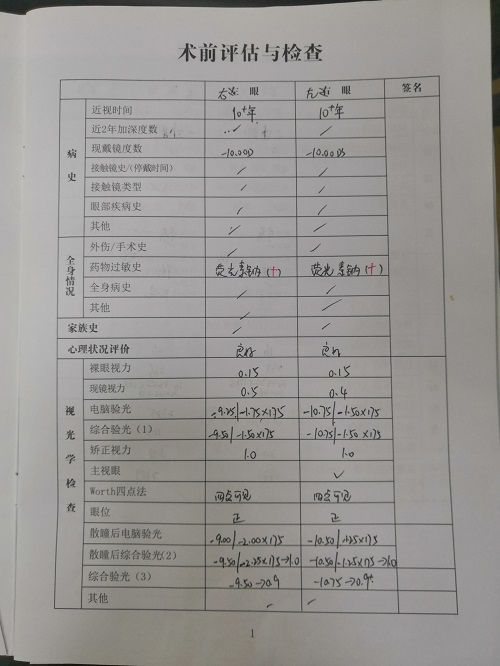 术前评估与检查
右 眼 左 眼 签名
病史
近视时间 10+年 10+年
近2年加深度数 / /
现戴镜度数 -10.00D -10.00DS
接触镜史/(停戴时间) / /
接触镜类型 / /
眼部疾病史 / /
其他 / /
全身情况
外伤/手术史 / /
药物过敏史 荧光素钠(+) 荧光素钠(+)
全身病史 / /
其他 / /
家族史 / /
心理状况评价 良好 良好
视光学检查
裸眼视力 0.15 0.15
现镜视力 0.5 0.4
电脑验光 -9.25/-1.75×175 -10.75/-1.50×175
综合验光(1) -9.50/-1.50×175 -10.75/-1.50×175
矫正视力 1.0 1.0
主视眼 ✓
Worth四点法 四点可见 四点可见
眼位 正 正
散瞳后电脑验光 -9.00/-2.00×175 -10.50/ ×175
散瞳后综合验光(2) -9.50/-2.25×175→1.0 -10.50/-1.25×175→1.0
综合验光(3) -9.50→0.9 -10.75→0.9+
其他 / /
1